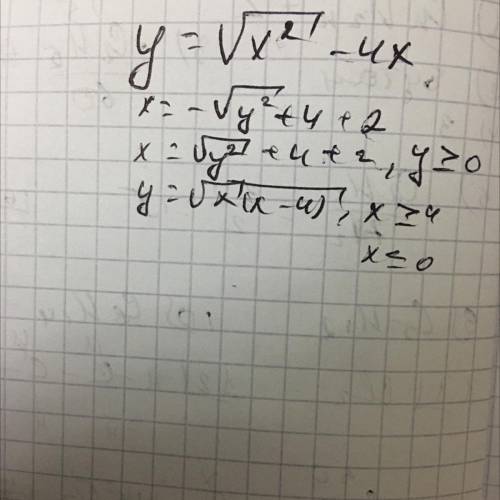 y = √x² - 4x
x = -√y² + 4 + 2
x = √y² + 4 + 2, y ≥ 0
y = √x(x - 4), x ≥ 4
x ≤ 0